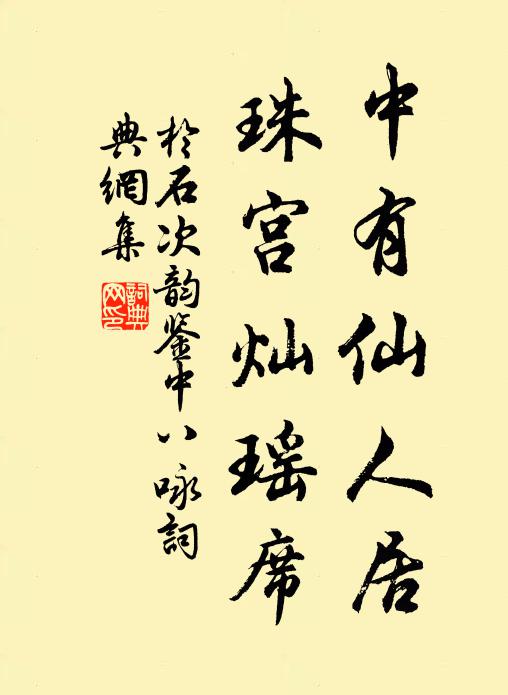 中有仙人居
珠宫灿瑶席
於石次韵鉴中八咏詞
典網集
詞典
网印